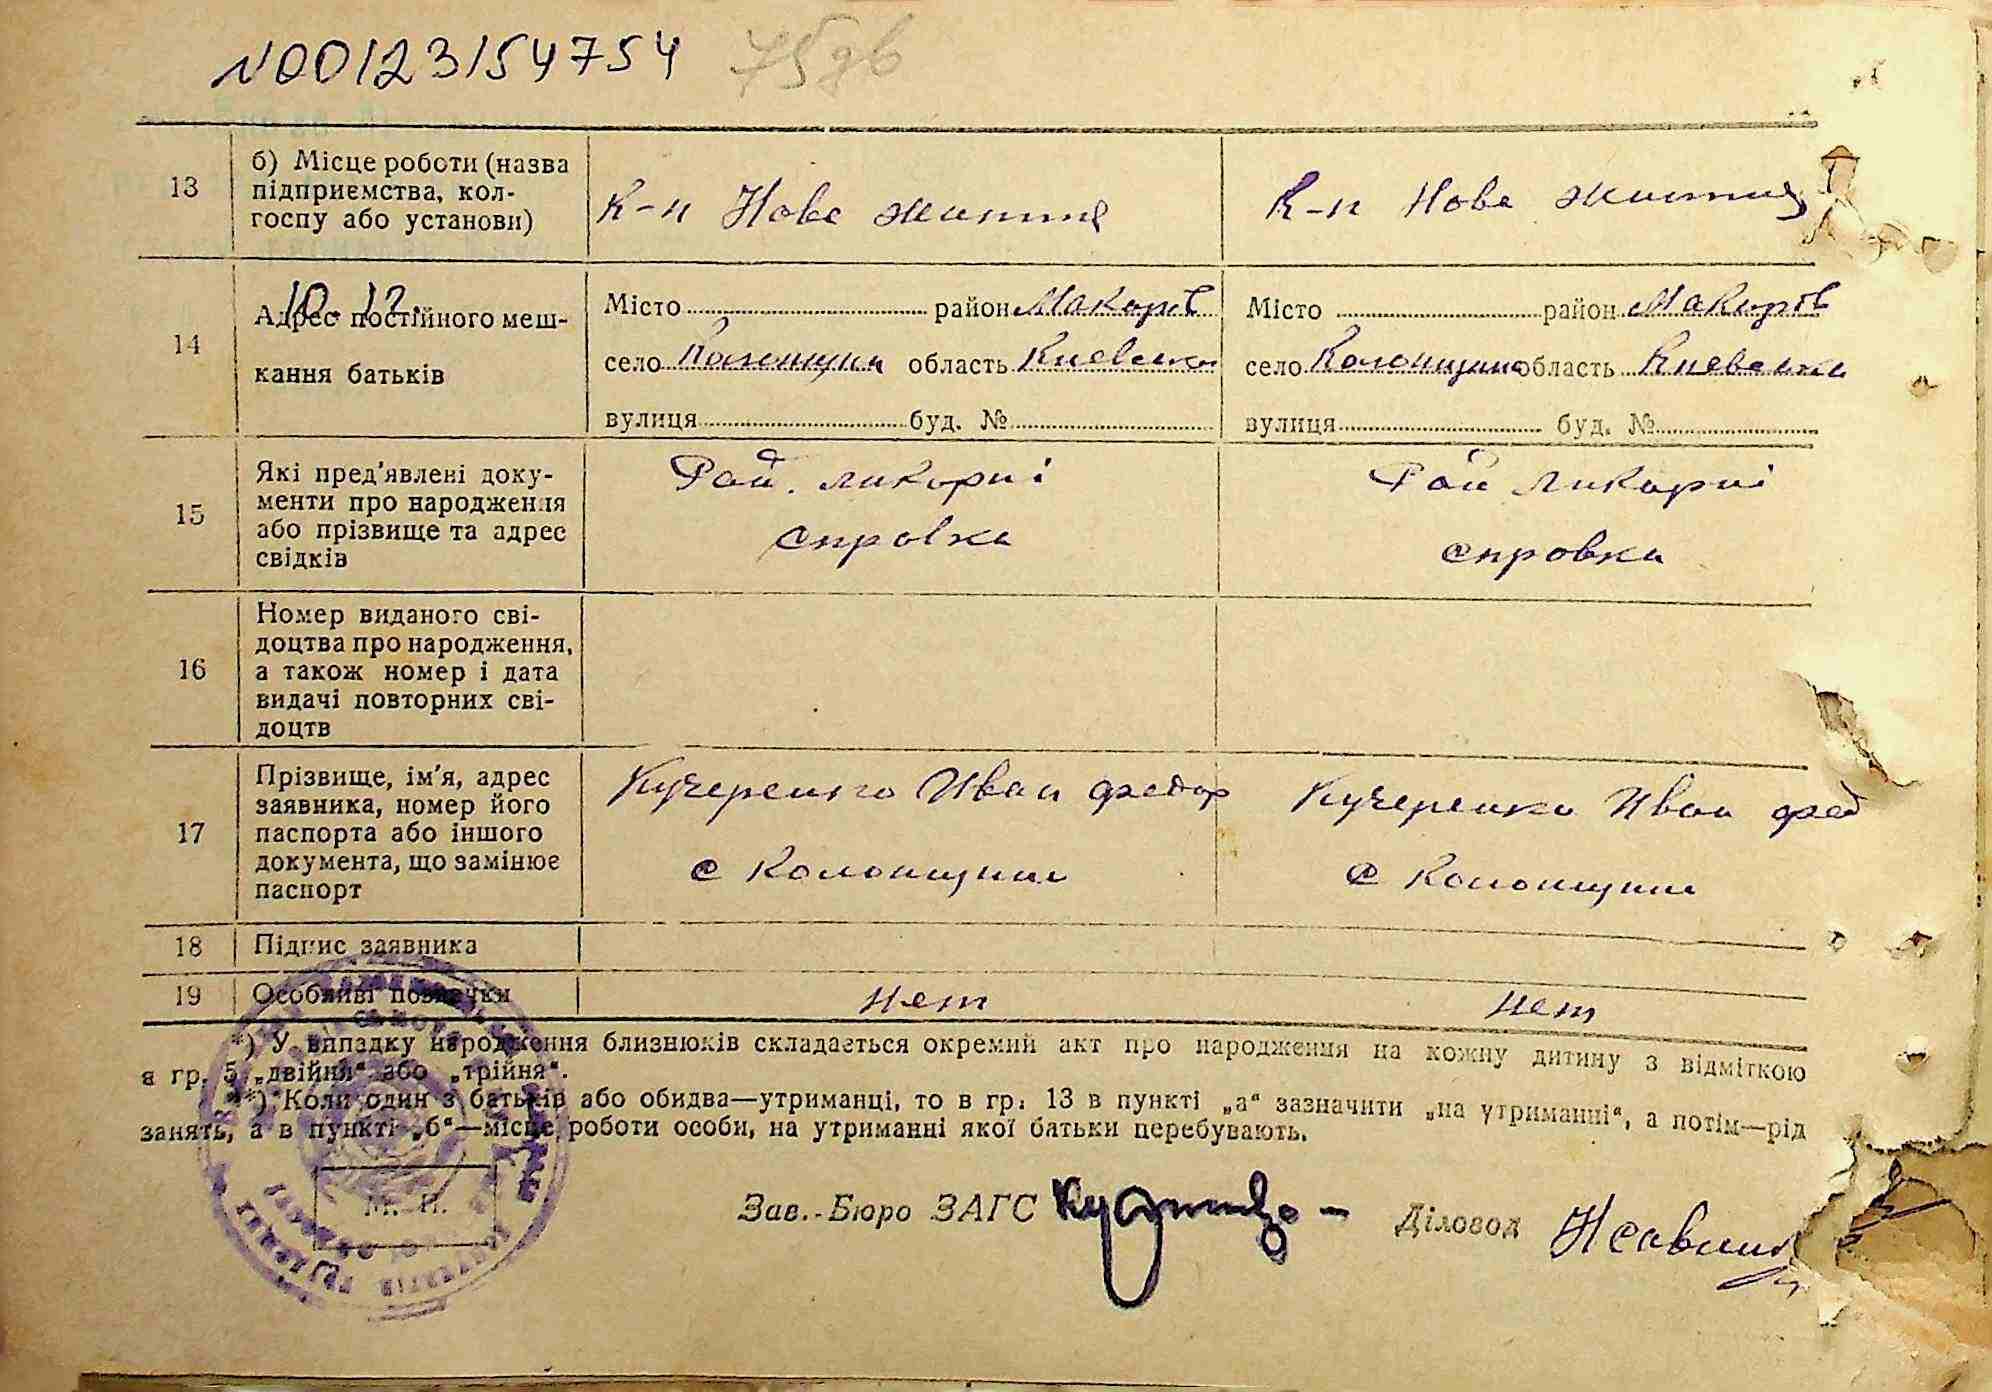 N00123154754 75дв
13 б) Місце роботи (назва
підприємства, кол-
госпу або установи)
К-п Нове життя К-п Нове життя
14 Адрес постійного меш-
кання батьків
10.12.
Місто район Макарів Місто район Макарів
село Колонщина область Киевська село Колонщина область Киевська
вулиця буд. № вулиця буд. №
15 Які пред'явлені доку-
менти про народження
або прізвище та адрес
свідків
Рай. ликарні Рай ликарні
справка справка
16 Номер виданого сві-
доцтва про народження,
а також номер і дата
видачі повторних сві-
доцтв
17 Прізвище, ім'я, адрес
заявника, номер його
паспорта або іншого
документа, що замінює
паспорт
Кучеренко Иван федор Кучеренко Иван фед
с Колонщина с Колонщина
18 Підпис заявника
19 Особливі позначки нет нет
*) У випадку народження близнюків складається окремий акт про народження на кожну дитину з відміткою
в гр. 5 „двійня“ або „трійня“.
**) Коли один з батьків або обидва—утриманці, то в гр. 13 в пункті „а“ зазначити „на утриманні“, а потім—рід
занять, а в пункті „б“—місце роботи особи, на утриманні якої батьки перебувають.
М. П.
Зав.-Бюро ЗАГС Діловод